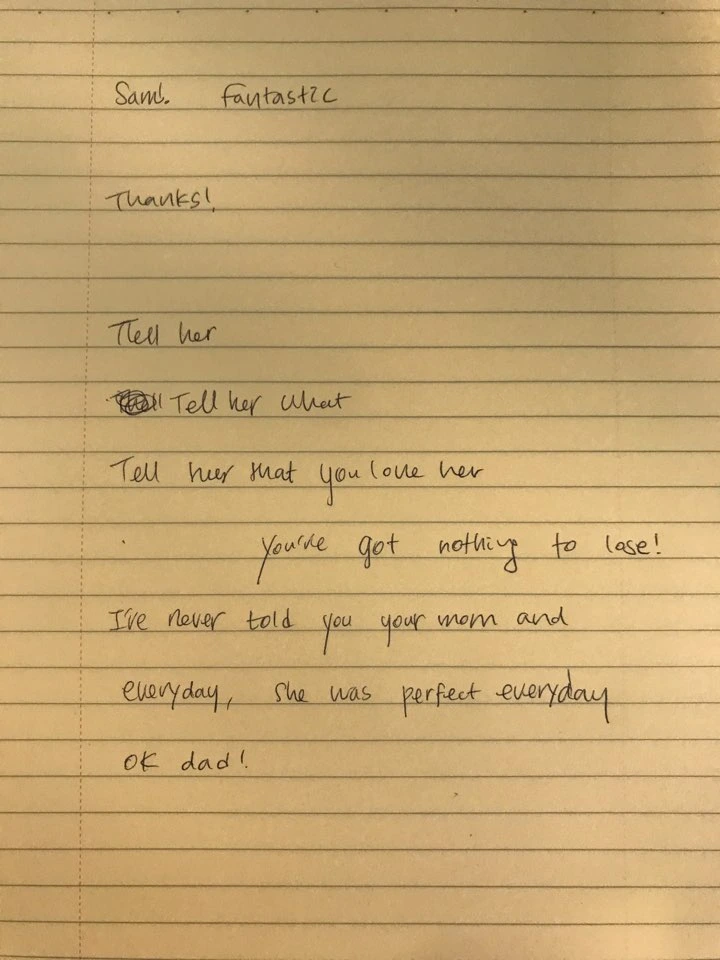 Sam!. Fantastic
Thanks!
Tell her
Tell her what
Tell her that you love her
you've got nothing to lose!
I've never told you your mom and
everyday, she was perfect everyday
OK dad!